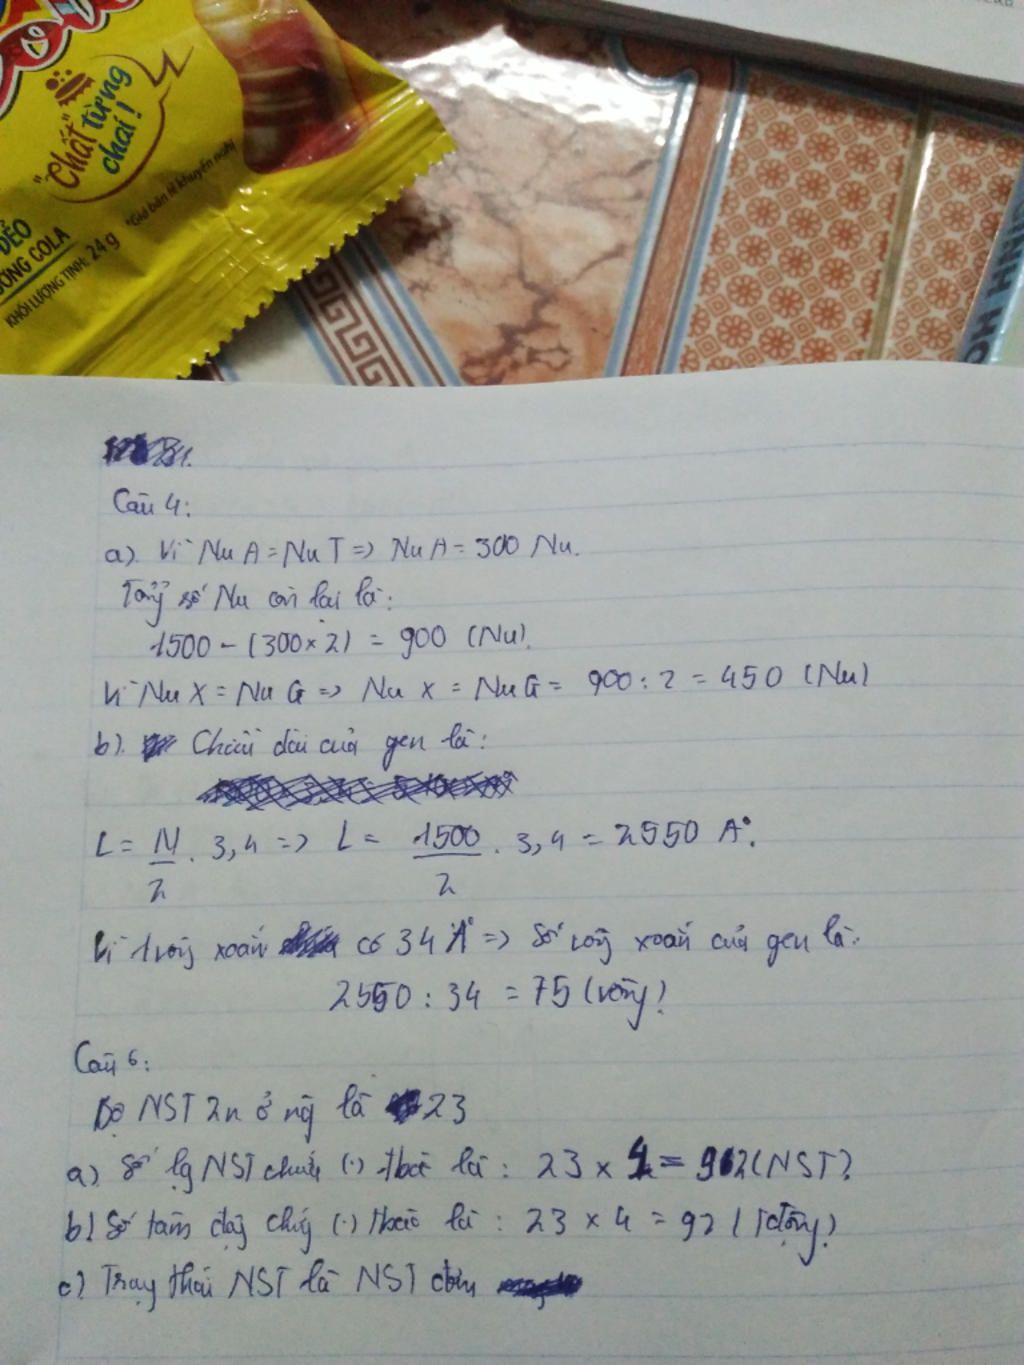 "Chất"
từng
chai!
*Giá bán lẻ khuyến nghị
DẺO
ƯƠNG COLA
KHỐI LƯỢNG TỊNH: 24g
Câu 4:
a). Vì Nu A = Nu T => Nu A = 300 Nu.
Tổng số Nu còn lại là:
1500 - (300 x 2) = 900 (Nu).
Vì Nu X = Nu G => Nu X = Nu G = 900 : 2 = 450 (Nu)
b). Chiều dài của gen là:
L = N/2 . 3,4 => L = 1500/2 . 3,4 = 2550 A°.
Vì 1 vòng xoắn có 34 A° => Số vòng xoắn của gen là:
2550 : 34 = 75 (vòng)
Câu 6:
Bộ NST 2n ở ng là 23
a) Số lg NST chuẩn (.) tbào là : 23 x = (NST).
b) Số tâm động chúng (.) tbào là : 23 x 4 = 92 (Tđộng)
c) Trạng thái NST là NST đơn